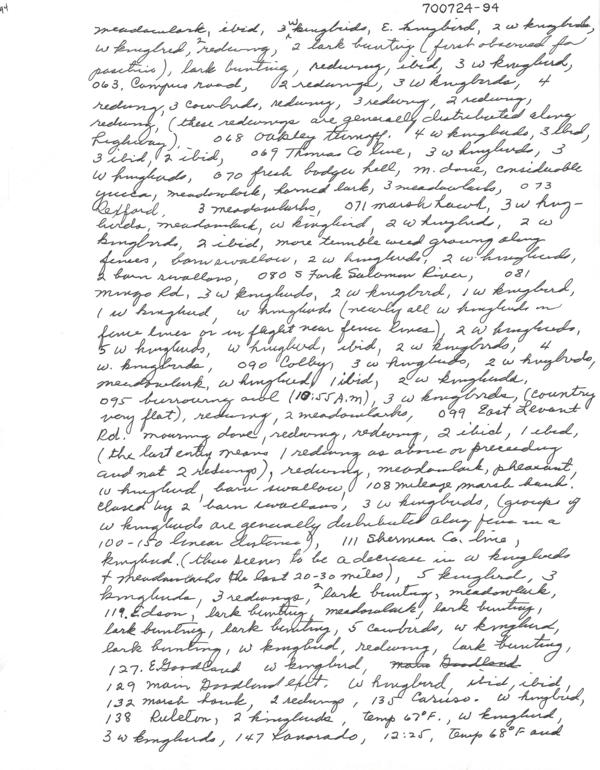 700724-94
meadowlark, ibid, 3 w kingbirds, E. kingbird, 2 w kingbirds,
w kingbird, 2 redwing, 2 lark bunting (first observed for
positive), lark bunting, redwing, ibid, 3 w kingbird,
063. Campus road, 2 redwings, 3 w kingbirds, 4
redwing, 3 cowbirds, redwing, 3 redwing, 2 redwing,
redwing, (these redwings are generally distributed along
highway). 068 Oakley turnoff. 4 w kingbirds, 3 ibid,
3 ibid, 2 ibid, 069 Thomas Co line, 3 w kingbirds, 3
w kingbirds, 070 fresh badger hell, m. dove, considerable
yucca, meadowlark, horned lark, 3 meadowlarks, 073
3 meadowlarks, 071 marsh hawk, 3 w king-
birds, meadowlark, w kingbird, 2 w kingbirds, 2 w
kingbirds, 2 ibid, more tumble weed growing along
fences, barn swallow, 2 w kingbirds, 2 w kingbirds,
2 barn swallows, 080 S Fork Saloman River, 081
Mingo Rd, 3 w kingbirds, 2 w kingbird, 1 w kingbird,
1 w kingbird, w kingbirds (nearly all w kingbirds on
fence lines or in flight near fence lines), 2 w kingbirds,
5 w kingbirds, w kingbird, ibid, 2 w kingbirds, 4
w. kingbirds, 090 Colby, 3 w kingbirds, 2 w kingbirds,
meadowlark, w kingbird, 1 ibid, 2 w kingbirds,
095 burrowing owl (10:55 A.M), 3 w kingbirds, (country
very flat), redwing, 2 meadowlarks, 099 East Levant
Rd. mourning dove, redwing, redwing, 2 ibid, 1 ibid,
(the last entry means 1 redwing as above or preceeding
and not 2 redwings), redwing, meadowlark, pheasant,
w kingbird, barn swallow, 108 mileage marsh hawk
chased by 2 barn swallows, 3 w kingbirds, (groups of
w kingbirds are generally distributed along fence in a
100-150 linear distance), 111 Sherman Co. line,
kingbird. (there seems to be a decrease in w kingbirds
+ meadowlarks the last 20-30 miles), 5 kingbird, 3
kingbirds, 3 redwings, 2 lark bunting, meadowlark,
119. Edson, lark bunting, meadowlark, lark bunting,
lark bunting, lark bunting, 5 cowbirds, w kingbird,
lark bunting, w kingbird, redwing, lark bunting,
127. E Goodland w kingbird, main Goodland
129 main Goodland exit. w kingbird, ibid, ibid,
132 marsh hawk, 2 redwings, 135 Caruso. w kingbird,
138 Ruleton, 2 kingbirds, temp 67°F., w kingbird,
3 w kingbirds, 147 Kanorado, 12:25, temp 68°F and